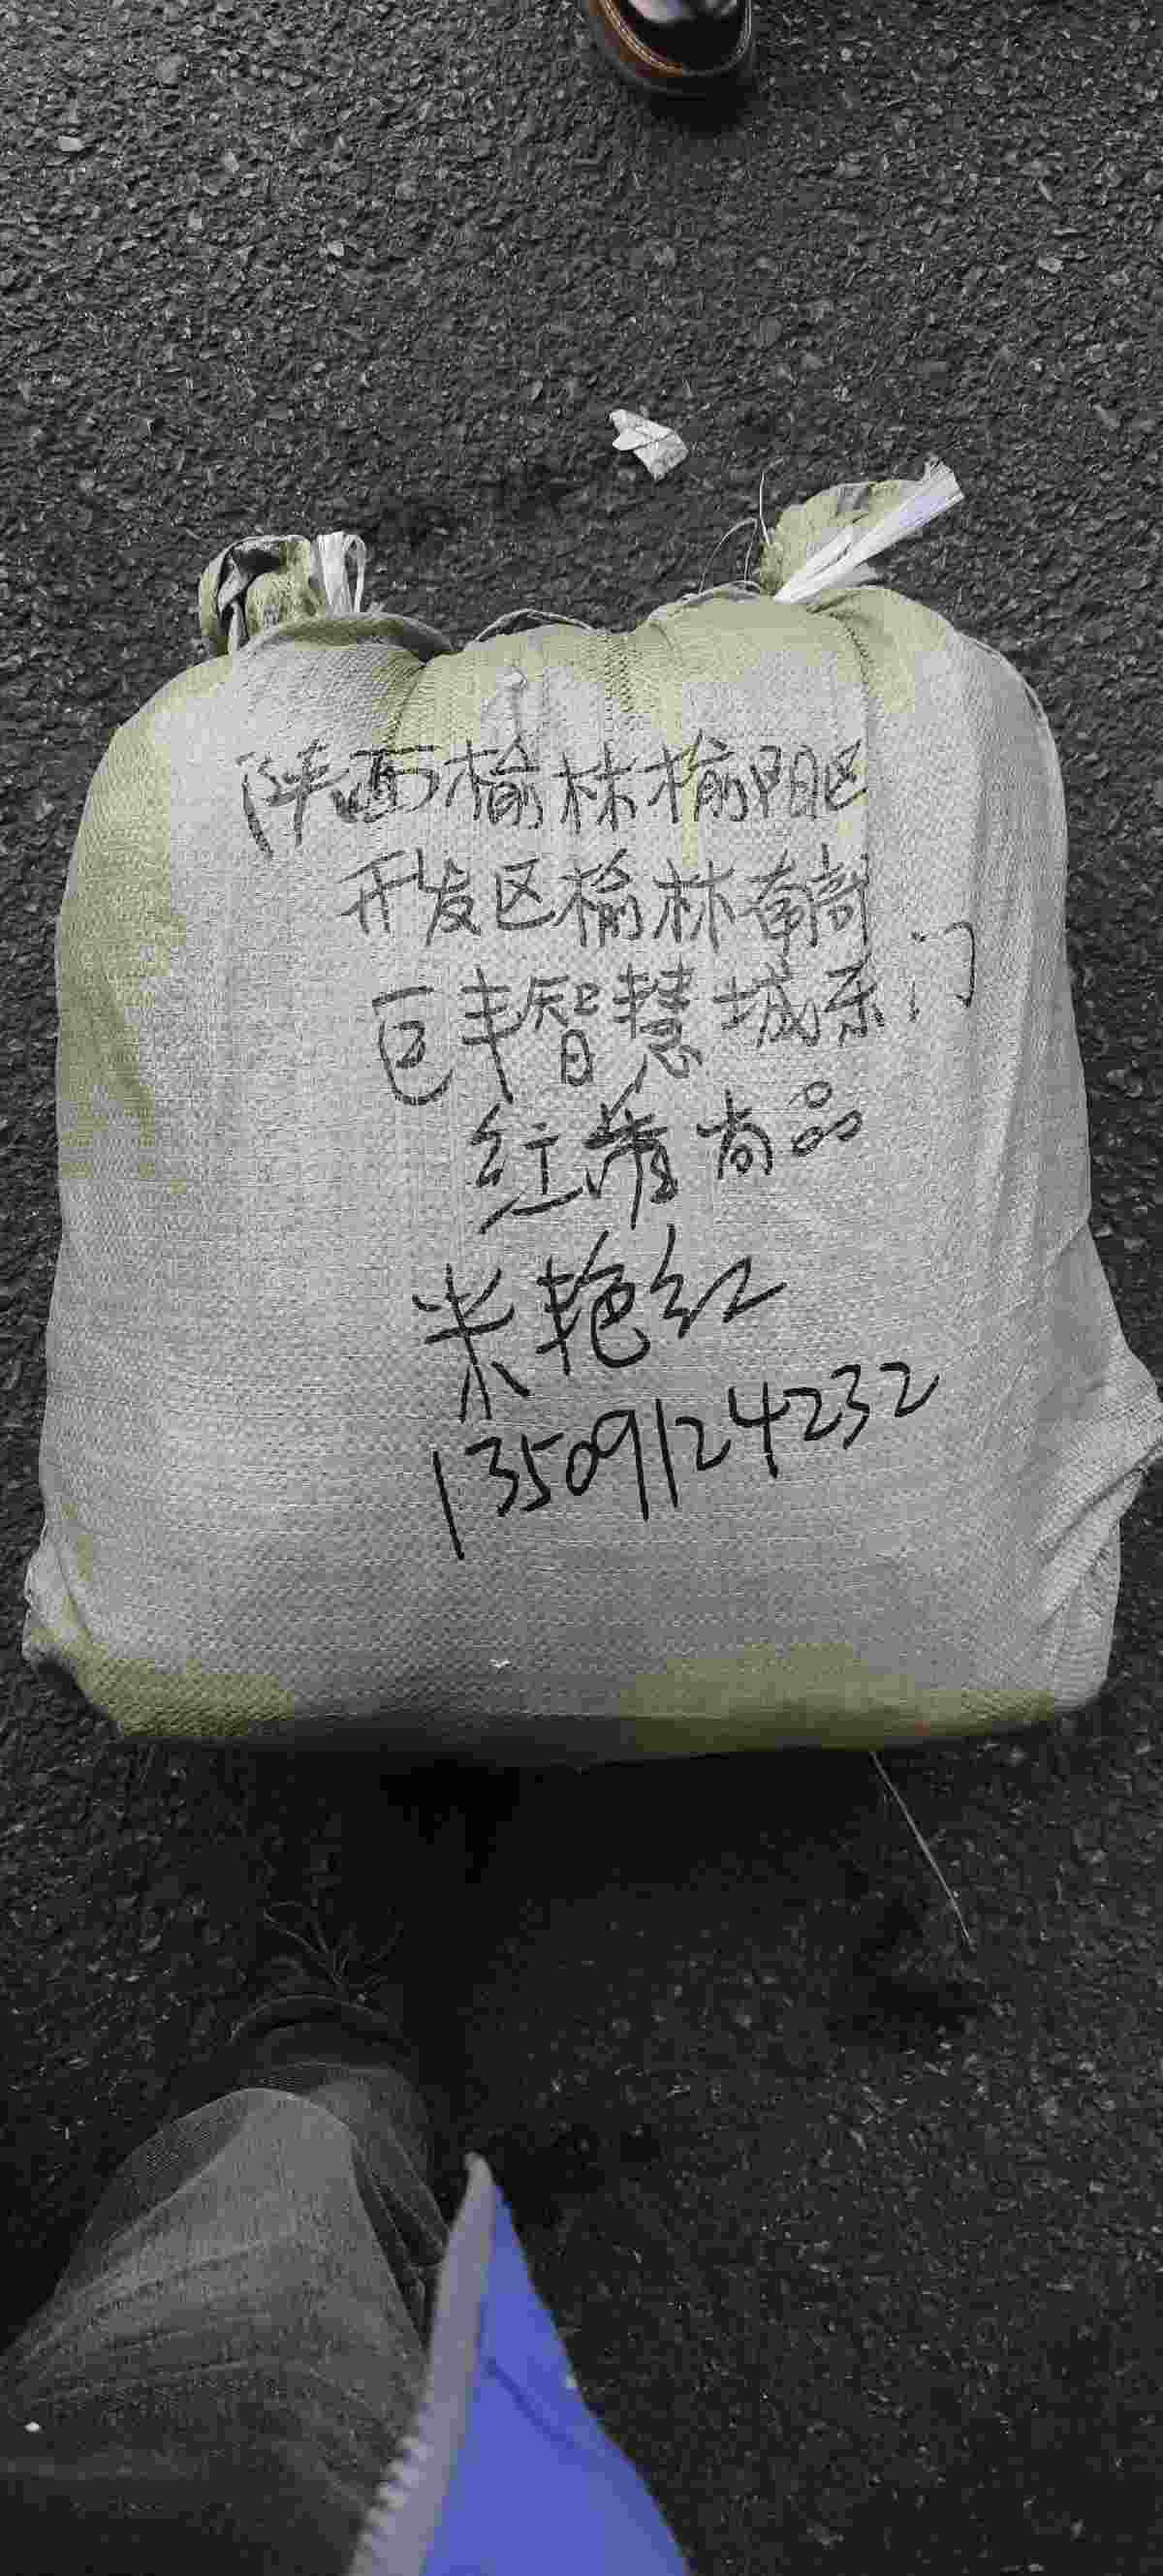 陕西榆林榆阳区
开发区榆林
巨丰智慧城东门
红 尚品
米艳红
13509124232